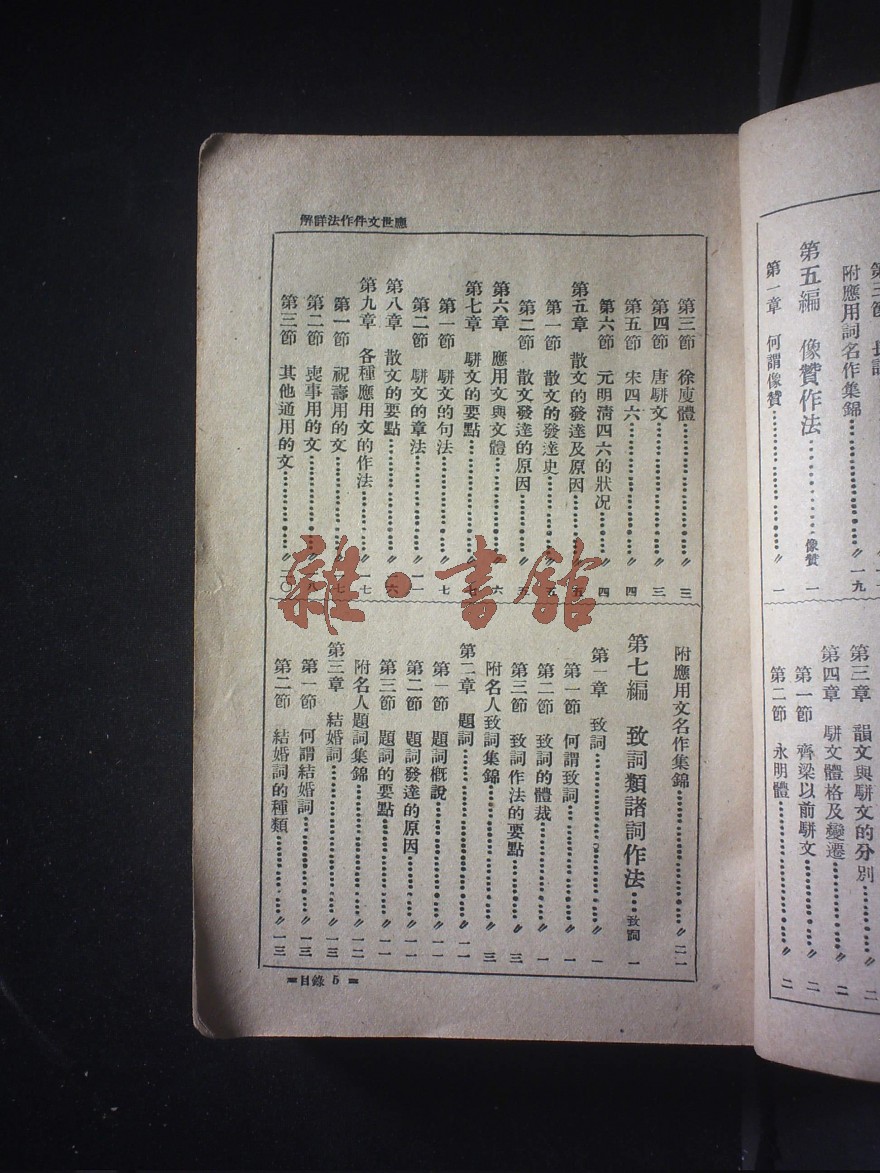 第五編 像贊作法…………像贊 一
第一章 何謂像贊…………〃 一
附應用詞名作集錦…………〃 一九
第三章 韻文與駢文的分別…………〃 二
第四章 駢文體格及變遷…………〃 二
第一節 齊梁以前駢文…………〃 二
第二節 永明體…………〃 二
應世文件作法詳解
第三節 徐庾體…………〃 三
第四節 唐駢文…………〃 三
第五節 宋四六…………〃 四
第六節 元明清四六的狀况…………〃 四
第五章 散文的發達及原因…………〃 五
第一節 散文的發達史…………〃 五
第二節 散文發達的原因…………〃 五
第六章 應用文與文體…………〃 六
第七章 駢文的要點…………〃 七
第一節 駢文的句法…………〃 七
第二節 駢文的章法…………〃 一一
第八章 散文的要點…………〃 一六
第九章 各種應用文的作法…………〃 一七
第一節 祝壽用的文…………〃 一七
第二節 喪事用的文…………〃 一八
第三節 其他通用的文…………〃 二〇
附應用文名作集錦…………〃 二一
第七編 致詞類諸詞作法…致詞 一
第一章 致詞…………〃 一
第一節 何謂致詞…………〃 一
第二節 致詞的體裁…………〃 一
第三節 致詞作法的要點…………〃 三
附名人致詞集錦…………〃 三
第二章 題詞…………〃 一一
第一節 題詞概說…………〃 一一
第二節 題詞發達的原因…………〃 一一
第三節 題詞的要點…………〃 一一
附名人題詞集錦…………〃 一二
第三章 結婚詞…………〃 一三
第一節 何謂結婚詞…………〃 一三
第二節 結婚詞的種類…………〃 一三
＝目錄 5＝
雜·書館